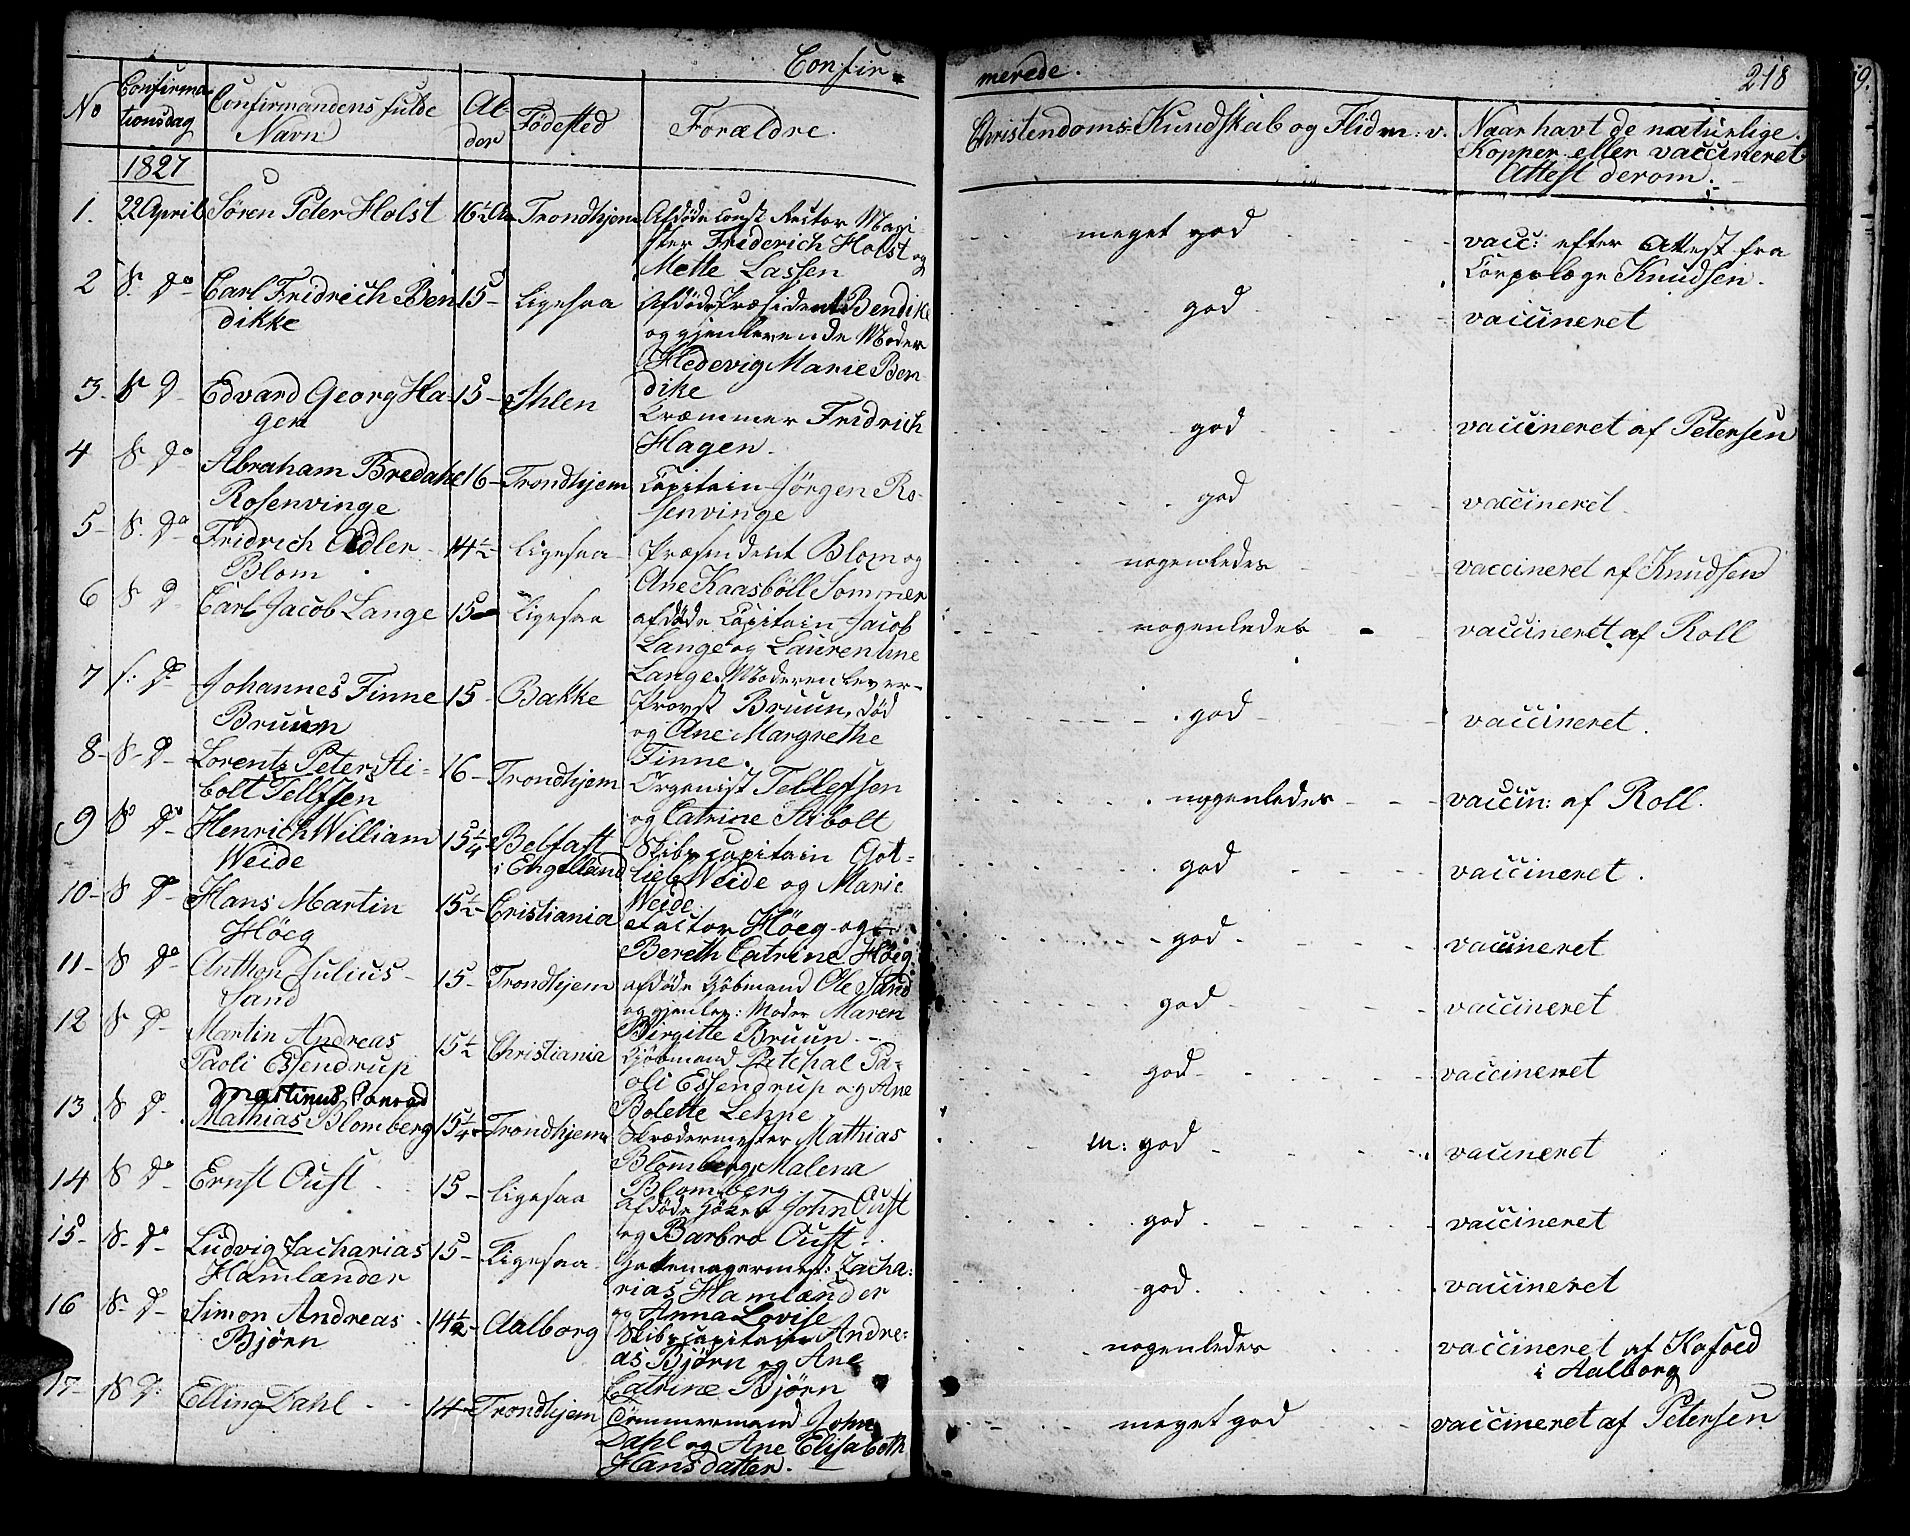 Confir-
merede.
218
No
Confirma-
tionsdag
Confirmandens fulde
Navn
Al-
der
Fødested
Forældre.
Christendoms-Kundskab og Flid m: v.
Naar havt de naturlige
Kopper eller vaccineret
Attest derom.
1827
1.
22 April
Søren Peter Holst
16½
Trondhjem
Afdøde Const Rector Magi-
ster Friderich Holst og
Mette Lassen
meget god
vacc: efter Attest fra
Corpslæge Knudsen.
2
S. Do
Carl Fridrich Ben
dikke
15-
ligesaa
Afdøde Præsident Bendike
og gjenlevende Moder
Hedevig Marie Ben
dike
god
vaccineret
3-
S D-
Edvard Georg Ha-
gen
15-
Ihlen
Cræmmer Fridrich
Hagen.
god
vaccineret af Petersen
4
S. Do
Abraham Bredahl
Rosenvinge
16-
Trondhjem
Capitain Jörgen Ro-
senvinge
god
vaccineret.
5-
S. Do
Fridrich Adler
Blom.
14½-
ligesaa
Præsident Blom og
Ane Kaasböll Sommer
nogenledes
vaccineret af Knudsen
6
S D-
Carl Jacob Lange
15
Ligesaa
afdøde Capitain Jacob
Lange og Laurentine
Lange. Moderen lever-
nogenledes
vaccineret af Roll
7
S: Do
Johannes Finne
Bruun
15-
Bakke
Provst Bruun, død
og Ane Margrethe
Finne.
god
vaccineret.
8-
S- D-
Lorentz Peter Sti-
bolt Tellfsen
16-
Trondhjem
Organist Tellefsen
og Catrine Stibolt
nogenledes
vaccin: af Roll.
9
S Do-
Henrich William
Weide
15¼
Belfast
i Engelland
Skibs capitain Got-
lieb Weide og Marie
Weide.
god
vaccineret.
10-
S D-
Hans Martin
Höeg
15½-
Cristiania
Factor Höeg og
Bereth Catrine Höeg.
god
vaccineret
11-
S Do-
Anthon Julius-
Sand
15-
Trondhjem
afdøde Kjöbmand Ole Sand
og gjenlev: Moder Maren
Birgitte Bruun.
god
vaccineret
12
S D-
Martin Andreas
Paoli Essendrup
15½
Christiania
Kjöbmand Petchal Pa-
oli Essendrup og Ane
Bolette Lehne
god-
vaccineret
13
S D-
Martinus Conrad
Mathias Blomberg
15¼-
Trondhjem
Skrædermester Mathias
Blomberg, Malena
Blomberg.
m: god
vaccineret
14
S Do-
Ernst Oust
15-
ligesaa
Afdøde John Oust
og Barbro Oust.
god
vaccineret
15-
S- Do-
Ludvig Zacharias
Hamlænder
15-
Ligesaa
Gjertemagermest: Zacha:
rias Hamlænder
og Anna Lovise
god.
vaccineret
16
S- D-
Simon Andreas
Bjørn
14½-
Aalborg
Skibscapitain Andre:
as Bjørn og Ane
Catrine Bjørn
nogenledes
vaccineret af Kofoed
i Aalborg
17-
S D:
Elling Dahl
14-
Trondhjem
Tömmermand John
Dahl og Ane Elisabeth
Hansdatter.
meget god
vaccineret af Petersen